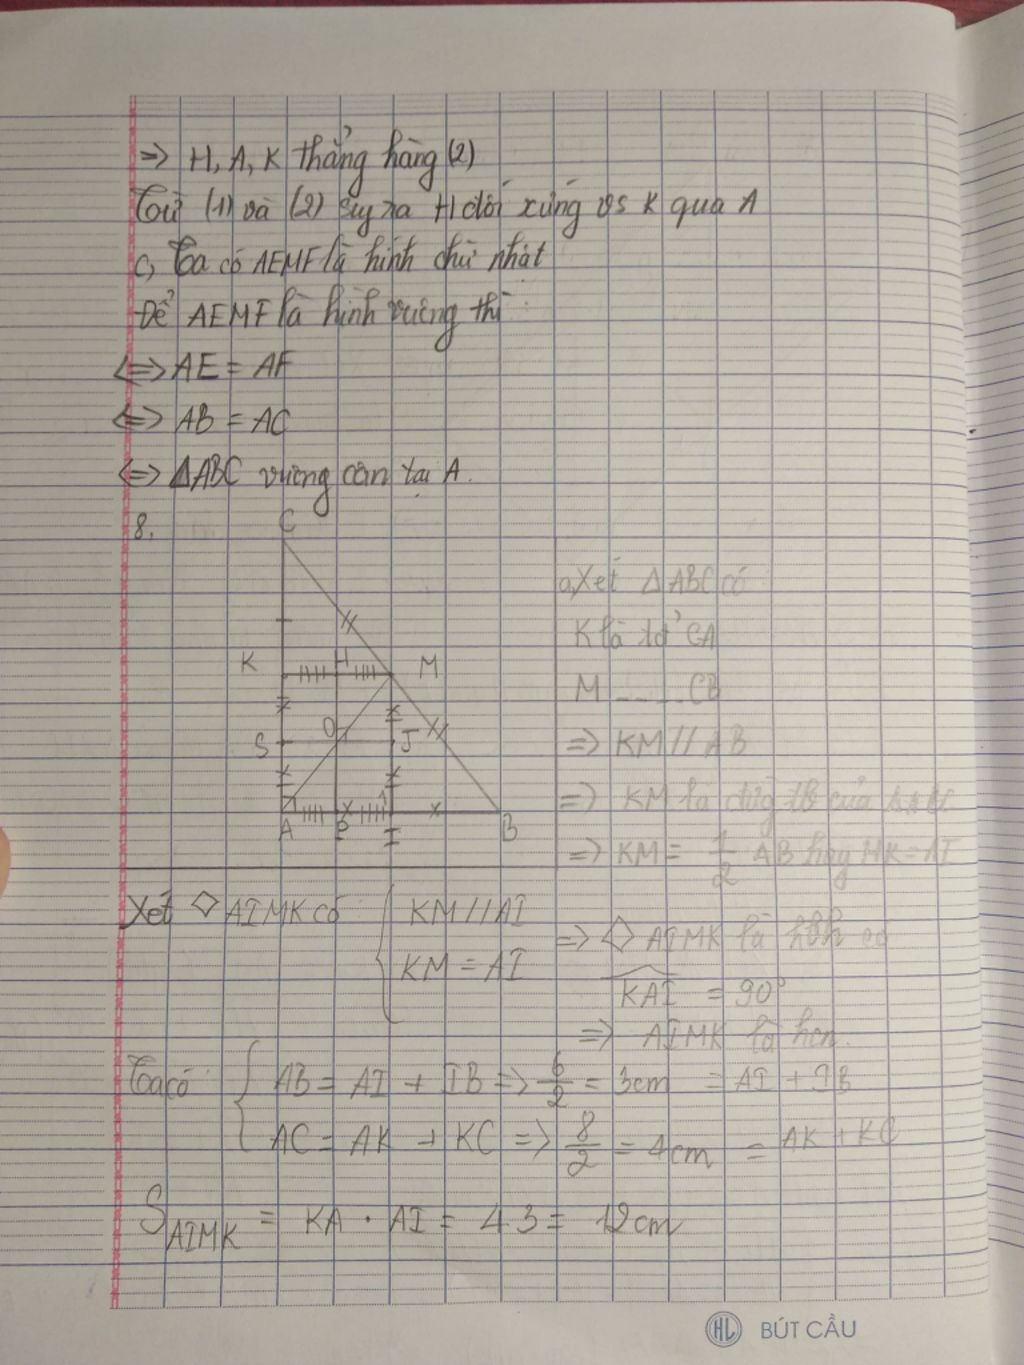 => H, A, K thẳng hàng (2)
Từ (1) và (2) suy ra H đối xứng vs K qua A
c, Ta có AEMF là hình chữ nhật
Để AEMF là hình vuông thì
<=> AE = AF
<=> AB = AC
<=> ΔABC vuông cân tại A.
8.
C
K H M
S O J
A P I B
a, Xét ΔABC có
K là tđ' CA
M _ _ _ . CB
=> KM // AB
=> KM là đg tb của ΔABC
=> KM = 1/2 AB hay MK = AI
Xét ◇ AIMK có { KM // AI
KM = AI
=> ◇ AIMK là hbh có
KAI = 90°
=> AIMK là hcn.
Ta có { AB = AI + IB => 6/2 = 3cm = AI + IB
AC = AK + KC => 8/2 = 4cm = AK + KC
S AIMK = KA . AI = 4 3 = 12cm
HL BÚT CẦU